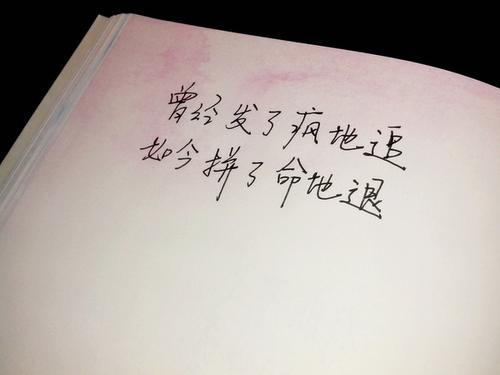 曾经发了疯地追
如今拼了命地退